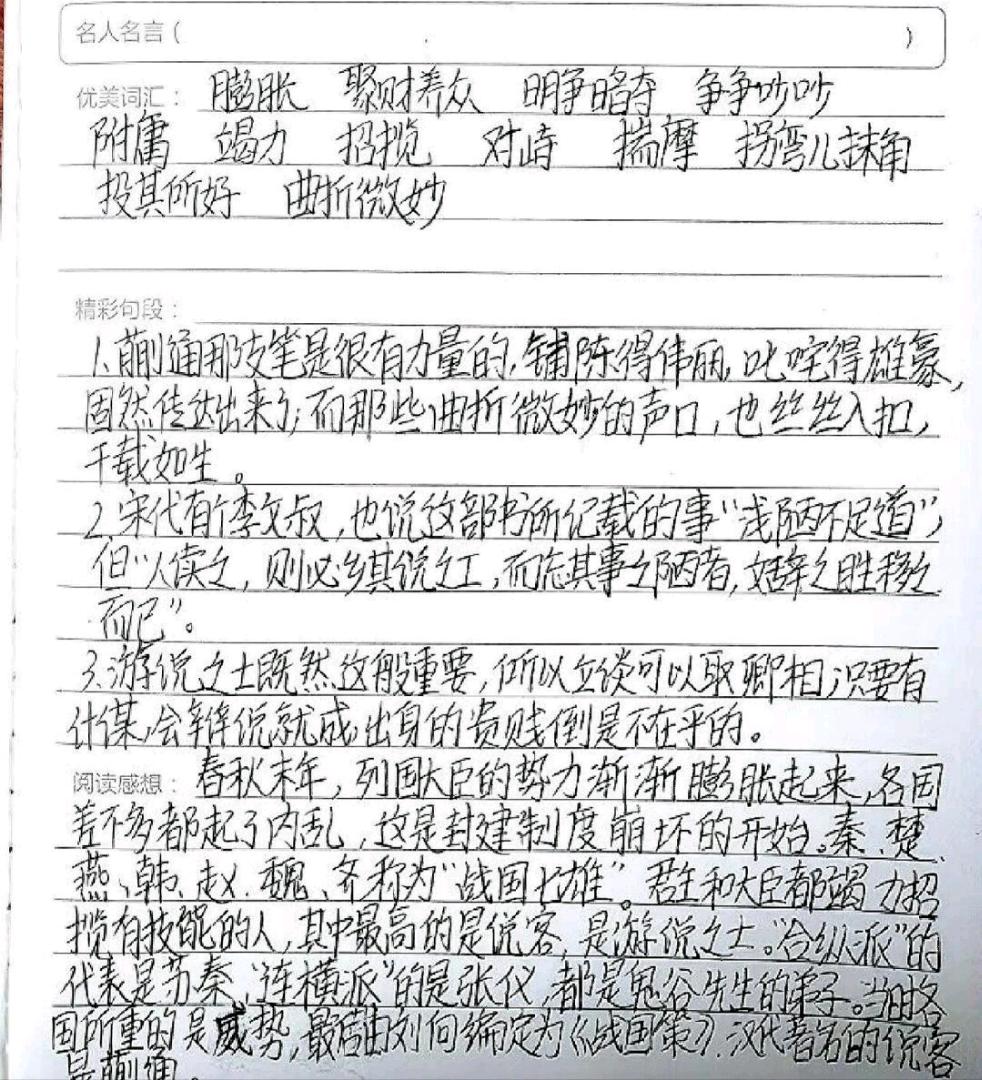 名人名言（ ）
优美词汇： 膨胀 聚财养众 明争暗夺 争争吵吵
附庸 竭力 招揽 对峙 揣摩 拐弯儿抹角
投其所好 曲折微妙
精彩句段：
1.蒯通那支笔是很有力量的,铺陈得伟丽,叱咤得雄豪,
固然传达出来了;而那些曲折微妙的声口,也丝丝入扣,
千载如生。
2.宋代有个李文叔,也说这部书所记载的事“浅陋不足道”,
但“人读之,则必乡其说之工,而忘其事之陋者,文辞之胜移之
而已”。
3.游说之士既然这般重要,所以立谈可以取卿相,只要有
计谋,会辩说就成,出身的贵贱倒是不在乎的。
阅读感想：春秋末年,列国大臣的势力渐渐膨胀起来,各国
差不多都起了内乱,这是封建制度崩坏的开始。秦、楚、
燕、韩、赵、魏、齐称为“战国七雄”。君主和大臣都竭力招
揽有技能的人,其中最高的是说客,是游说之士。“合纵派”的
代表是苏秦,“连横派”的是张仪,都是鬼谷先生的弟子。当时各
国所重的是威势,最后由刘向编定为《战国策》.汉代著名的说客
是蒯通。